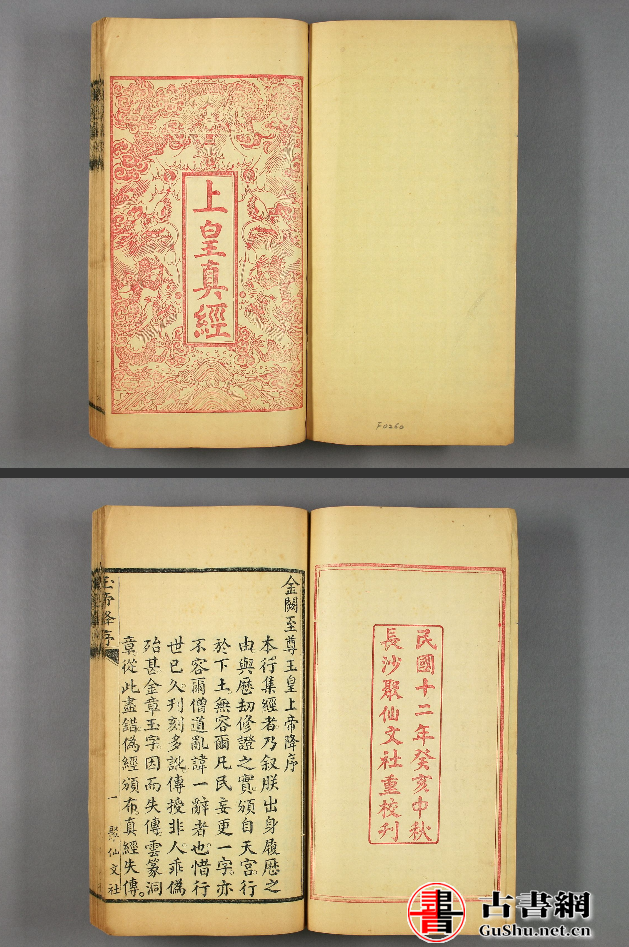 上皇真經
F0260
民國十二年癸亥中秋
長沙聚仙文社重校刊
金闕至尊玉皇上帝降序
本行集經者乃叙朕出身履歷之
由與歷刼修證之實頒自天宮行
於下土無容爾凡民妄更一字亦
不容爾僧道亂諱一辭者也惜行
世已久刊刻多訛傳授非人乖僞
殆甚金章玉字因而失傳雲篆洞
章從此盡錯僞經頒布真經失傳
玉帝降序
一
聚仙文社
書
古書網
GuShu.net.cn